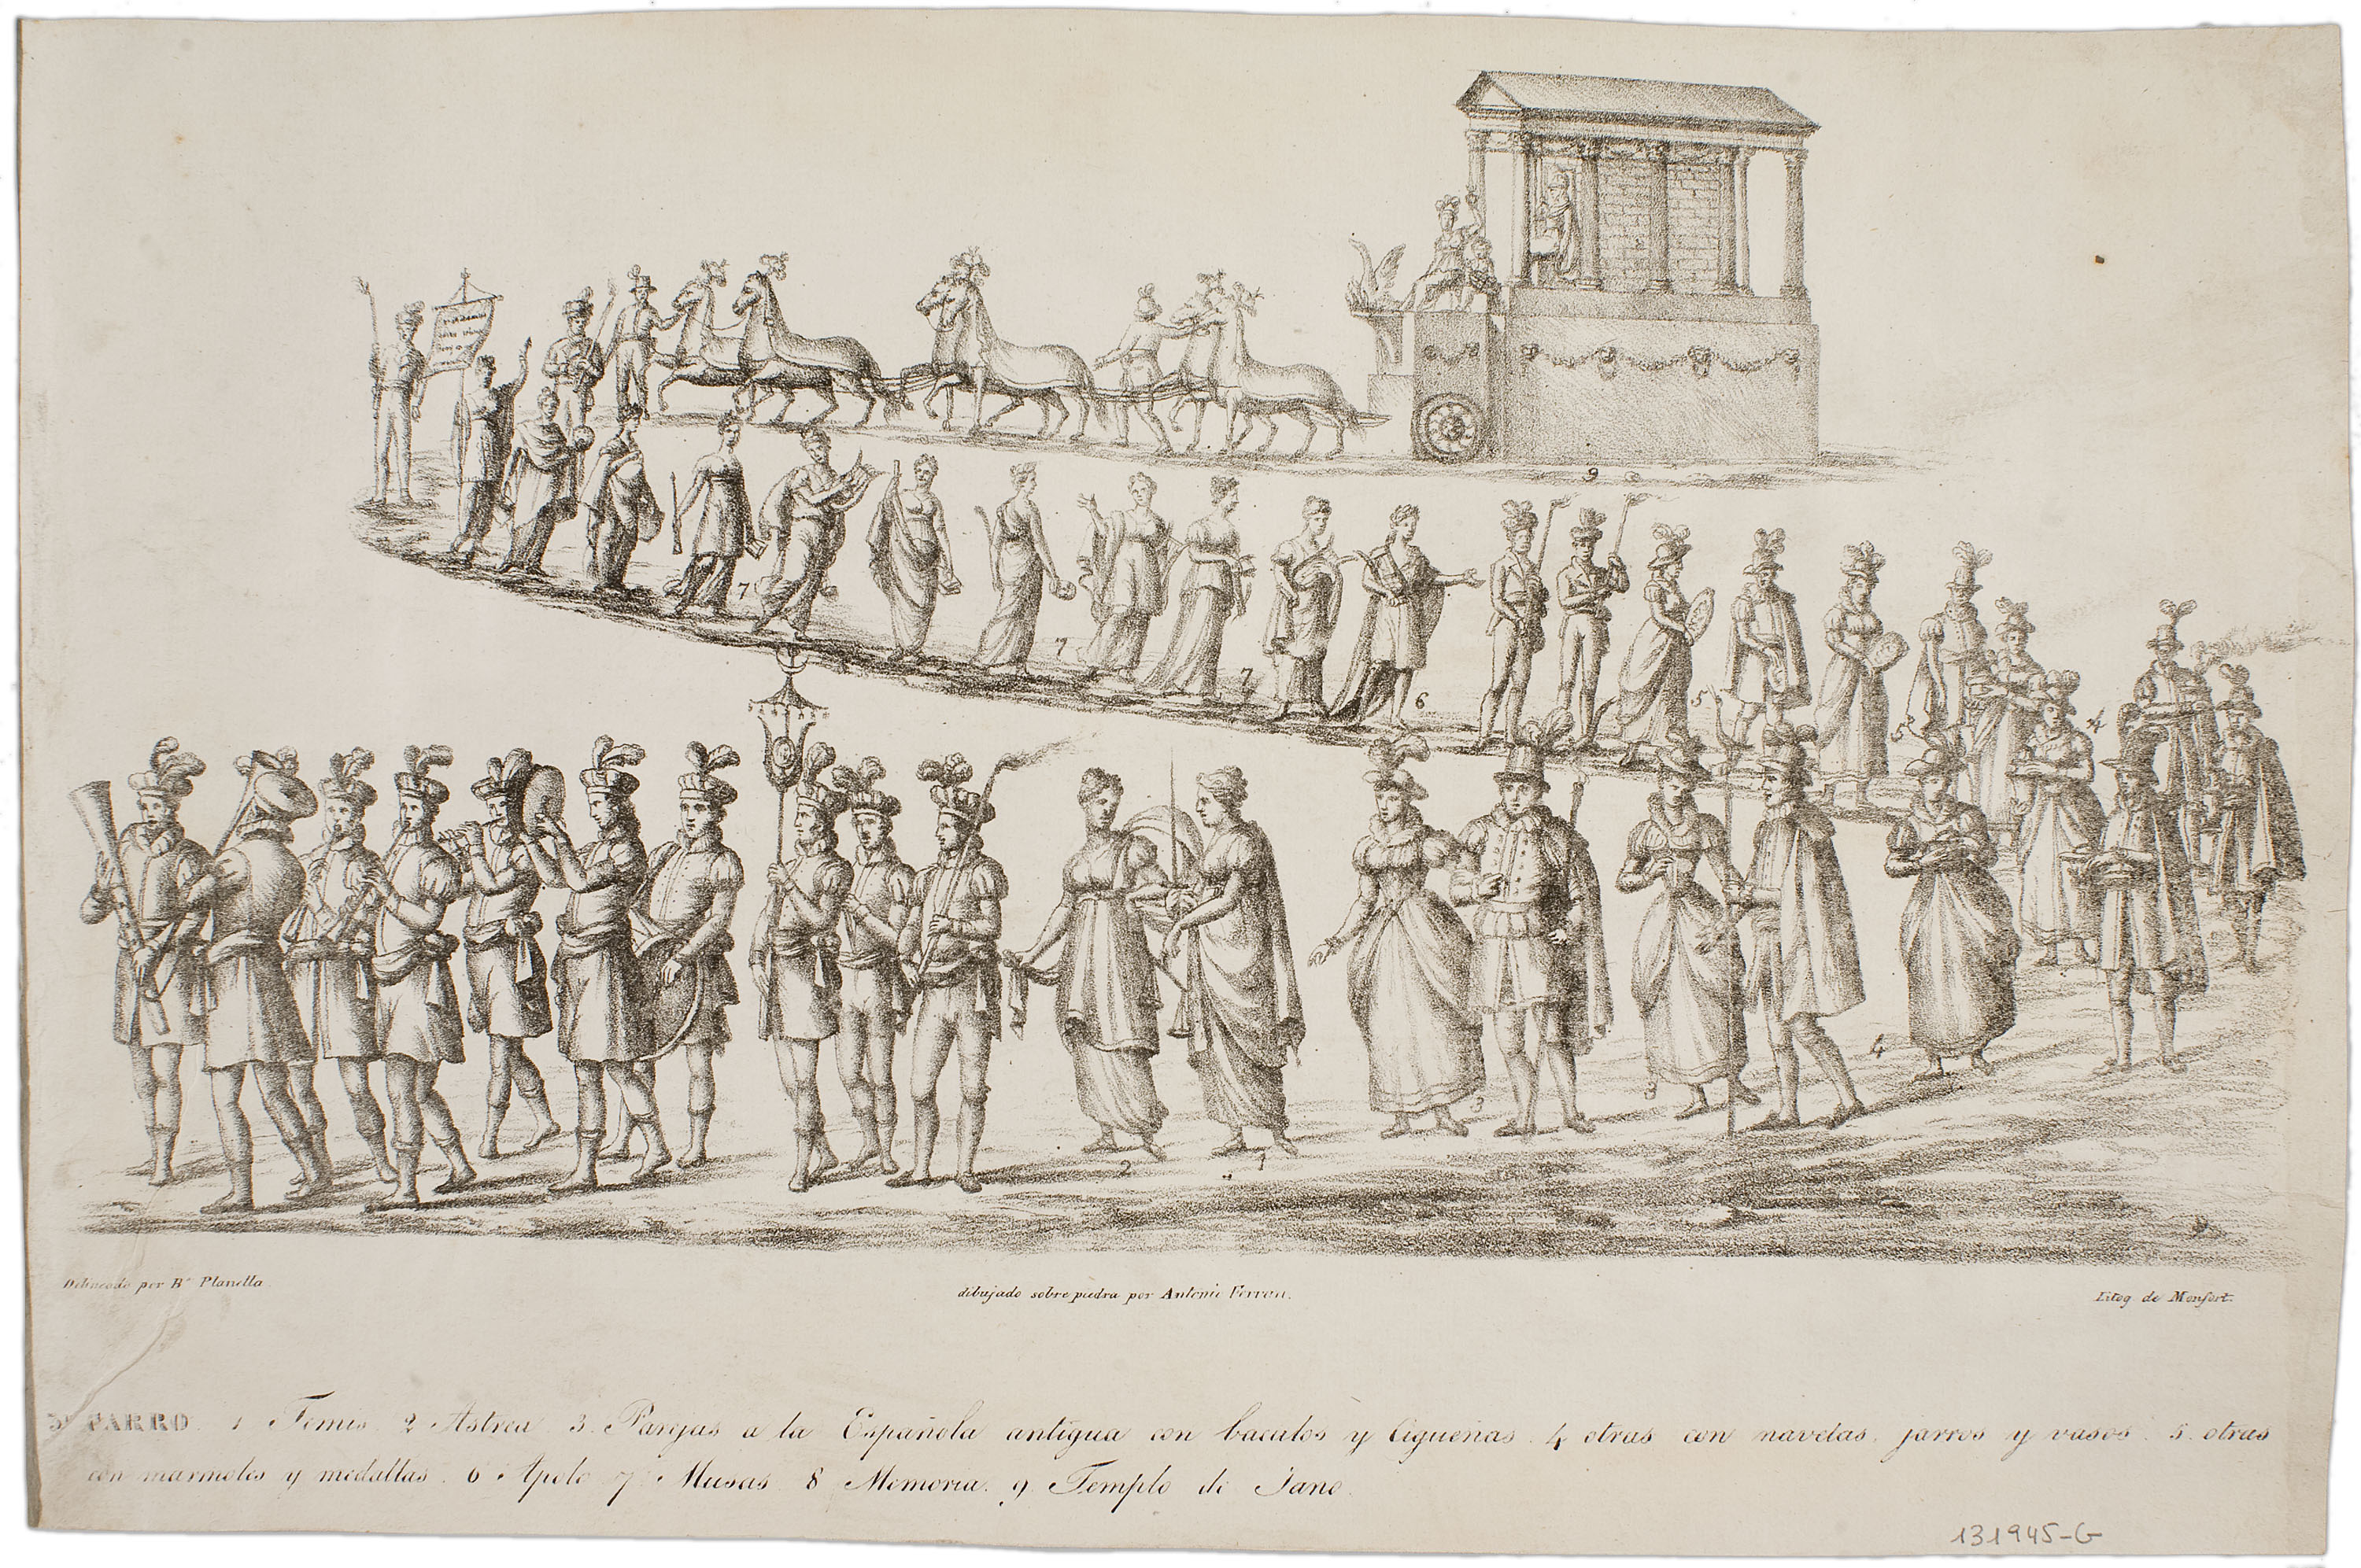 9
7
7
7
6
5
4
4
3
3
2
1
Delineado por Bᵃ Planella
dibujado sobre piedra por Antonio Ferran.
Litog de Monfort.
3ᵉʳ CARRO. 1 Temis. 2 Astrea. 3. Parejas a la Española antigua con baculos y Cigueñas. 4 otras con navetas, jarros y vasos. 5. otras
con marmoles y medallas. 6 Apolo 7 Musas 8 Memoria. 9. Templo de Jano.
131945-G